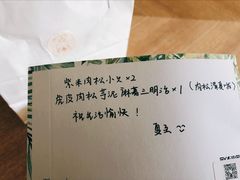 紫米肉松小贝×2
虎皮肉松芋泥麻薯三明治×1(肉松海苔味)
祝生活愉快！
夏天